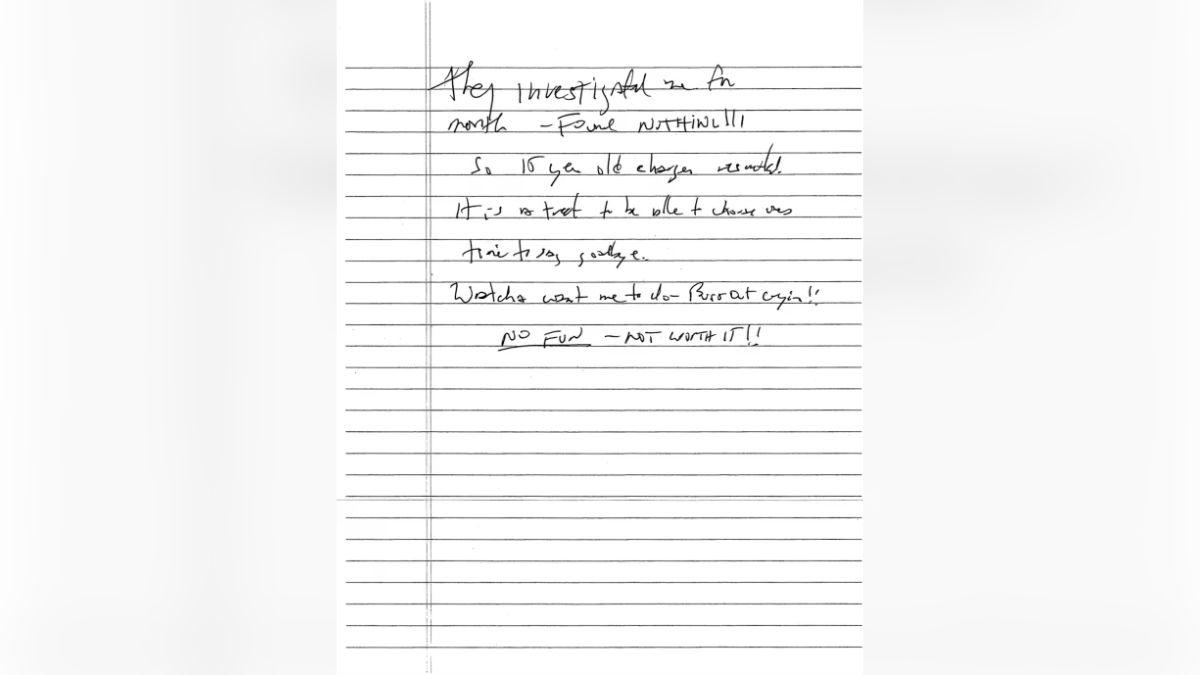 they investigated me for
month - Found NOTHING!!!
So 15 year old charges
It is a treat to be able to choose
time to say goodbye.
Watcha want me to do - Burst out cryin!!
NO FUN - NOT WORTH IT!!